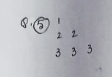 Q. 5 1
2 2
3 3 3